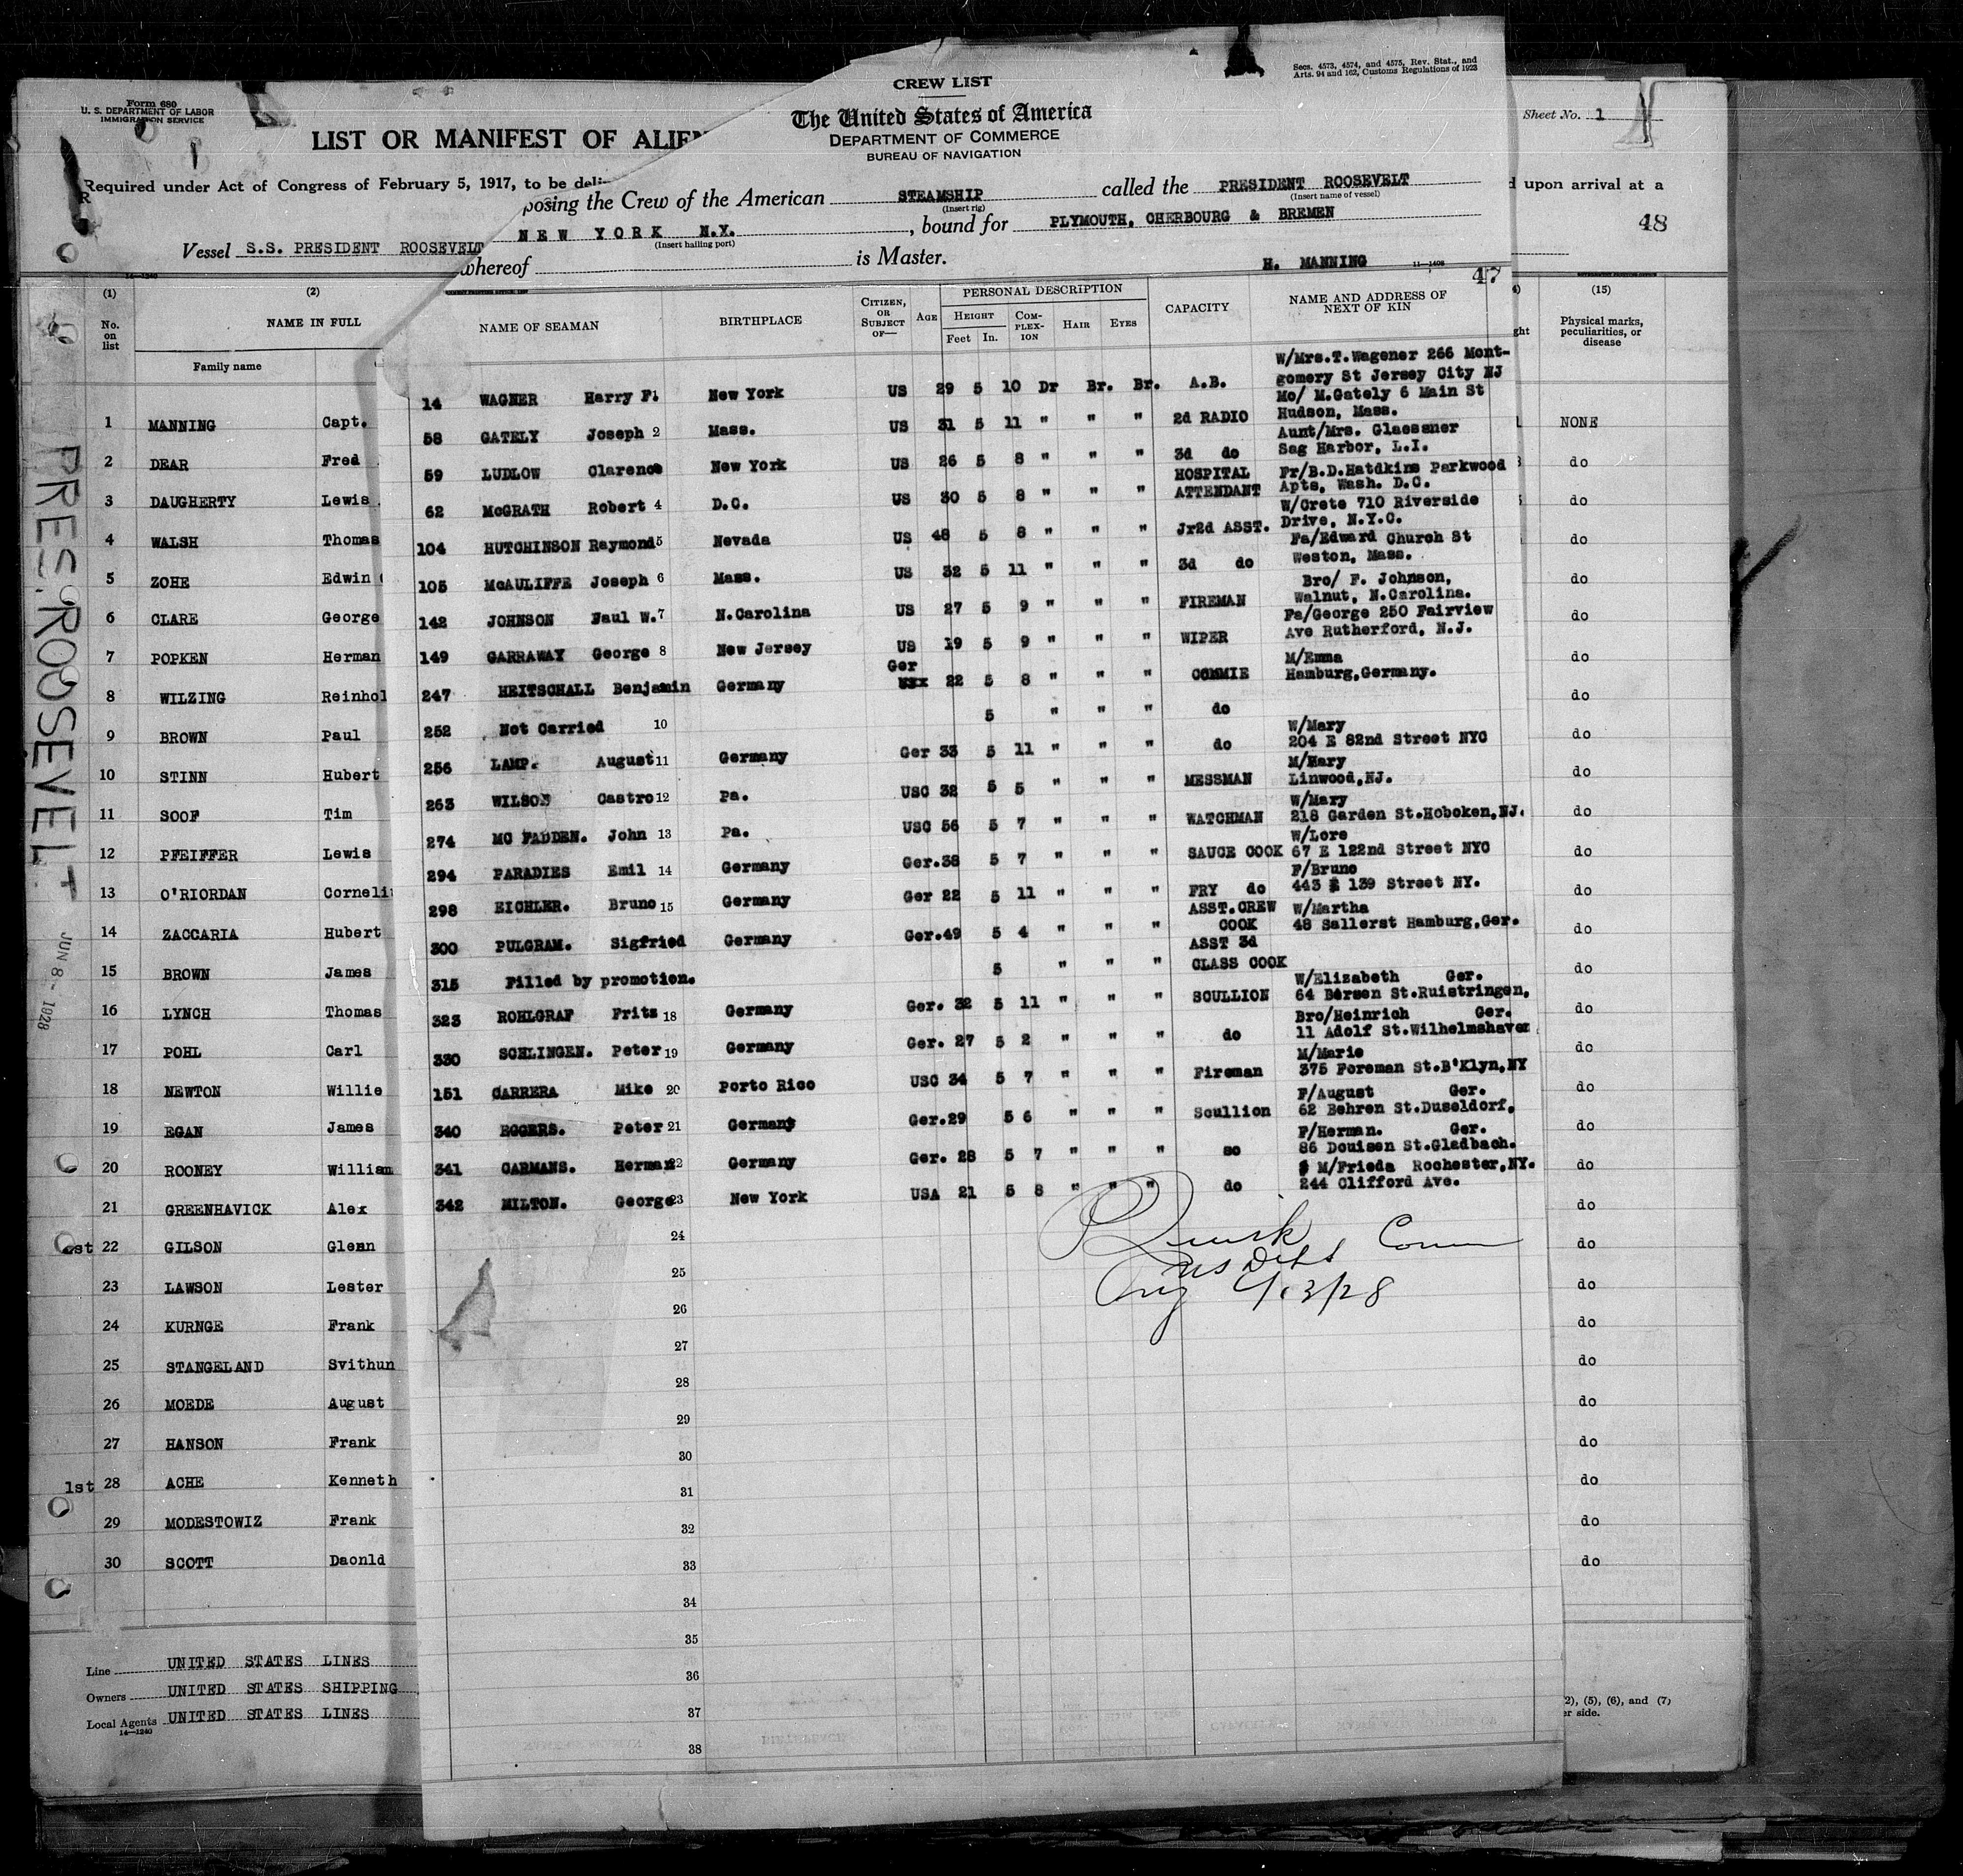 Form 680
U. S. DEPARTMENT OF LABOR
IMMIGRATION SERVICE
LIST OR MANIFEST OF ALIEN
Required under Act of Congress of February 5, 1917, to be
Vessel S.S. PRESIDENT ROOSEVELT
Sheet No. 1
upon arrival at a
48
PRES. ROOSEVELT
JUN 8 - 1928
CREW LIST
Secs. 4573, 4574, and 4575, Rev. Stat., and
Arts. 94 and 162, Customs Regulations of 1923
The United States of America
DEPARTMENT OF COMMERCE
BUREAU OF NAVIGATION
posing the Crew of the American STEAMSHIP called the PRESIDENT ROOSEVELT
(Insert rig) (Insert name of vessel)
NEW YORK N.Y. , bound for PLYMOUTH, CHERBOURG & BREMEN
(Insert hailing port)
whereof is Master. H. MANNING
11-1408
47
NAME OF SEAMAN BIRTHPLACE CITIZEN, OR SUBJECT OF— AGE PERSONAL DESCRIPTION HEIGHT Feet In. COMPLEXION HAIR EYES CAPACITY NAME AND ADDRESS OF NEXT OF KIN
14 WAGNER Harry F. 1 New York US 29 5 10 Dr Br. Br. A.B. W/Mrs.T.Wagener 266 Mont-
gomery St Jersey City NJ
58 GATELY Joseph 2 Mass. US 31 5 11 " " " 2d RADIO Mo/ M.Gately 6 Main St
Hudson, Mass.
59 LUDLOW Clarence New York US 26 5 8 " " " 3d do Aunt/Mrs. Glaessner
Sag Harbor, L.I.
62 McGRATH Robert 4 D.C. US 30 5 8 " " " HOSPITAL ATTENDANT Fr/B.D.Hatdkins Parkwood
Apts, Wash. D.C.
104 HUTCHINSON Raymond 5 Nevada US 48 5 8 " " " Jr2d ASST. W/Crete 710 Riverside
Drive, N.Y.C.
105 McAULIFFE Joseph 6 Mass. US 32 5 11 " " " 3d do Fa/Edward Church St
Weston, Mass.
142 JOHNSON Paul W. 7 N.Carolina US 27 5 9 " " " FIREMAN Bro/ F. Johnson,
Walnut, N.Carolina.
149 GARRAWAY George 8 New Jersey US 19 5 9 " " " WIPER Fa/George 250 Fairview
Ave Rutherford, N.J.
247 HEITSCHALL Benjamin Germany Ger 22 5 8 " " " COMMIE M/Emma
Hamburg,Germany.
252 Not Carried 10 5 " " " do
256 LAMP. August 11 Germany Ger 33 5 11 " " " do W/Mary
204 E 82nd Street NYC
263 WILSON Castro 12 Pa. USC 32 5 5 " " " MESSMAN M/Mary
Linwood,NJ.
274 MC FADDEN. John 13 Pa. USC 56 5 7 " " " WATCHMAN W/Mary
218 Garden St.Hoboken,NJ.
294 PARADIES Emil 14 Germany Ger.38 5 7 " " " SAUCE COOK W/Lore
67 E 122nd Street NYC
298 EICHLER. Bruno 15 Germany Ger 22 5 11 " " " FRY do F/Bruno
443 E 139 Street NY.
300 PULGRAM. Sigfried Germany Ger.49 5 4 " " " ASST.CREW COOK W/Martha
48 Sallerst Hamburg,Ger.
315 Filled by promotion. 5 " " " ASST 3d CLASS COOK
323 ROHLGRAF Fritz 18 Germany Ger. 32 5 11 " " " SCULLION W/Elizabeth Ger.
64 Børsen St.Ruistringen,
330 SCHLINGEN. Peter 19 Germany Ger. 27 5 2 " " " do Bro/Heinrich Ger.
11 Adolf St.Wilhelmshaven
151 CARRERA Mike 20 Porto Rico USC 34 5 7 " " " Fireman M/Marie
375 Foreman St.B'Klyn,NY
340 EGGERS. Peter 21 Germany Ger.29 5 6 " " " Scullion F/August Ger.
62 Behren St.Duseldorf,
341 CARMANS. Herman 22 Germany Ger. 28 5 7 " " " so F/Herman. Ger.
86 Douisen St.Gladbach.
342 MILTON. George 23 New York USA 21 5 8 " " " do M/Frieda Rochester,NY.
244 Clifford Ave.
24
25
26
27
28
29
30
31
32
33
34
35
36
37
38
(1) (2) (15)
No. on list NAME IN FULL Physical marks, peculiarities, or disease
Family name
1 MANNING Capt. NONE
2 DEAR Fred do
3 DAUGHERTY Lewis do
4 WALSH Thomas do
5 ZOHE Edwin do
6 CLARE George do
7 POPKEN Herman do
8 WILZING Reinhol do
9 BROWN Paul do
10 STINN Hubert do
11 SOOF Tim do
12 PFEIFFER Lewis do
13 O'RIORDAN Corneli do
14 ZACCARIA Hubert do
15 BROWN James do
16 LYNCH Thomas do
17 POHL Carl do
18 NEWTON Willie do
19 EGAN James do
20 ROONEY William do
21 GREENHAVICK Alex do
22 GILSON Glenn do
23 LAWSON Lester do
24 KURNGE Frank do
25 STANGELAND Svithun do
26 MOEDE August do
27 HANSON Frank do
1st 28 ACHE Kenneth do
29 MODESTOWIZ Frank do
30 SCOTT Daonld do
Line UNITED STATES LINES
Owners UNITED STATES SHIPPING
Local Agents UNITED STATES LINES
14-1240
2), (5), (6), and (7)
er side.